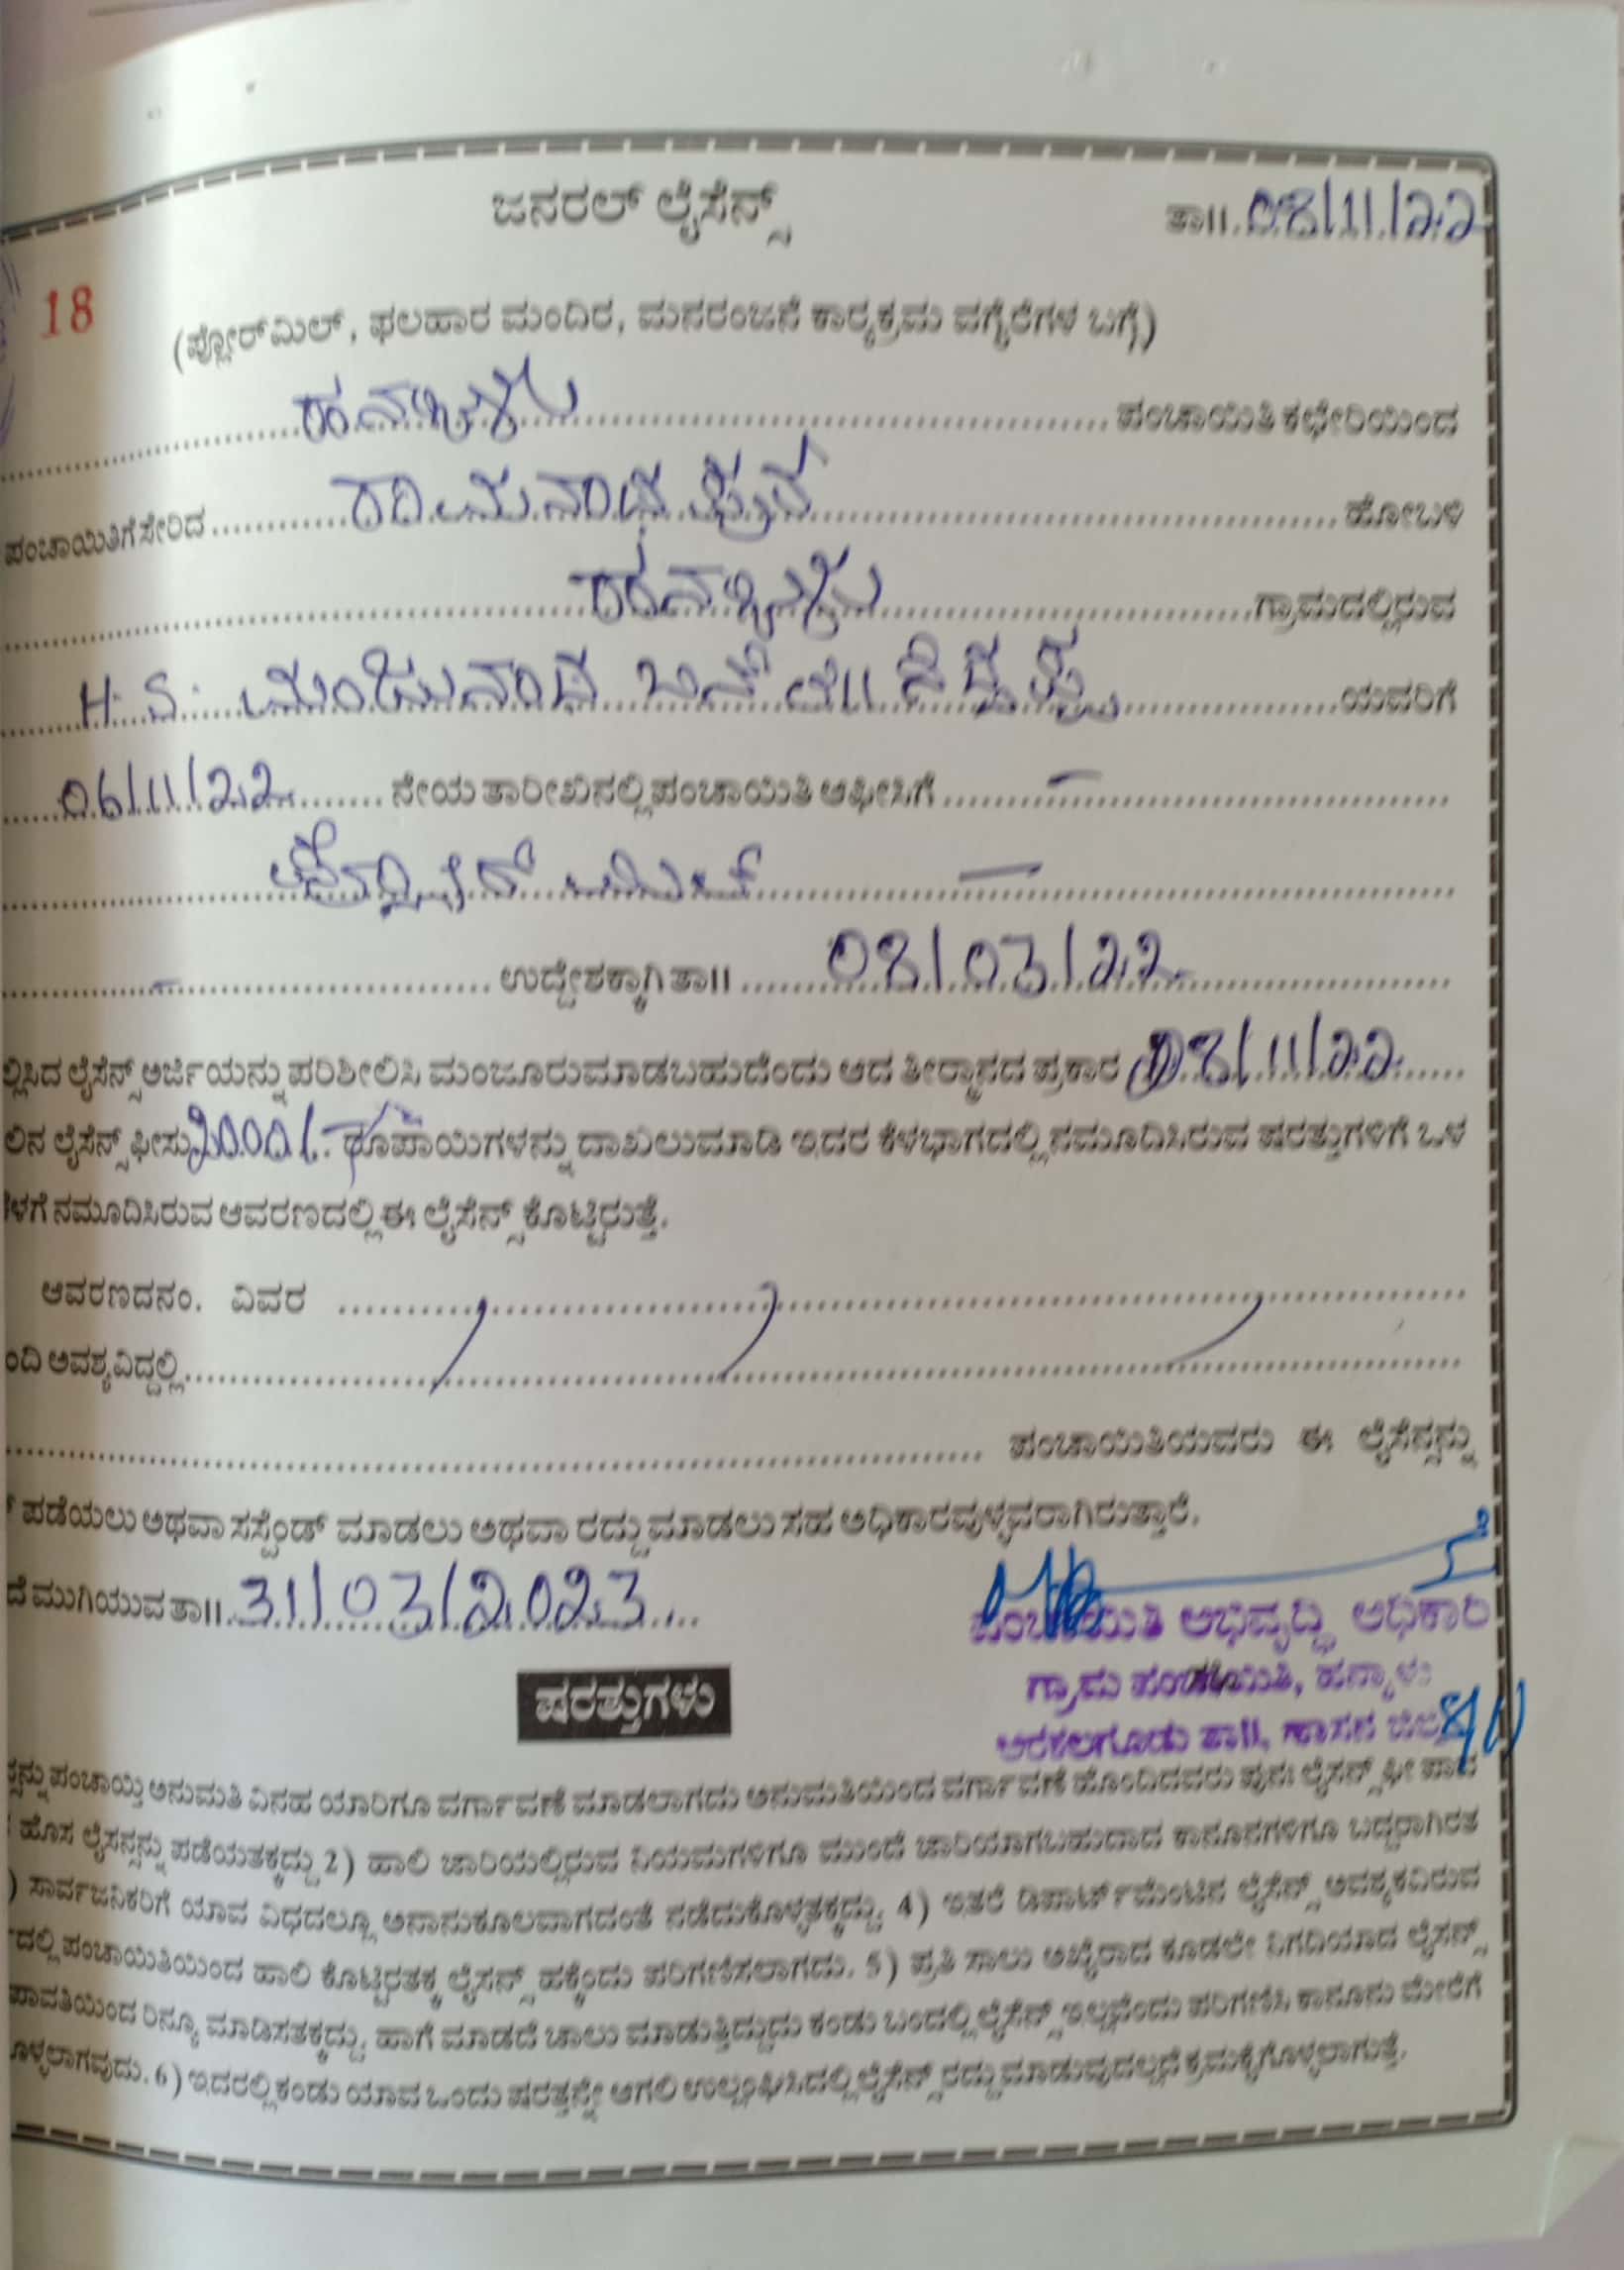 ಜನರಲ್ ಲೈಸೆನ್ಸ್
ತಾ॥ 08/11/22
18
(ಪ್ಲೋರ್‌ಮಿಲ್, ಫಲಹಾರ ಮಂದಿರ, ಮನರಂಜನೆ ಕಾರ್‍ಯಕ್ರಮ ವಗೈರೆಗಳ ಬಗ್ಗೆ)
ಹನ್ಯಾಳು ಪಂಚಾಯಿತಿ ಕಛೇರಿಯಿಂದ
ಪಂಚಾಯಿತಿಗೆ ಸೇರಿದ ರಾಮನಾಥಪುರ ಹೋಬಳಿ
ಹನ್ಯಾಳು ಗ್ರಾಮದಲ್ಲಿರುವ
H.S. ಮಂಜುನಾಥ ಬಿನ್ ಸಿದ್ದಪ್ಪ ಯವರಿಗೆ
06/11/22 ನೇಯ ತಾರೀಖಿನಲ್ಲಿ ಪಂಚಾಯಿತಿ ಆಫೀಸಿಗೆ —
ಮಿಲ್ —
— ಉದ್ದೇಶಕ್ಕಾಗಿ ತಾ॥ 08/03/22
ಲ್ಲಿಸಿದ ಲೈಸೆನ್ಸ್ ಅರ್ಜಿಯನ್ನು ಪರಿಶೀಲಿಸಿ ಮಂಜೂರುಮಾಡಬಹುದೆಂದು ಆದ ತೀರ್ಮಾನದ ಪ್ರಕಾರ 08/11/22
ಲಿನ ಲೈಸೆನ್ಸ್ ಫೀಸು 2000/- ರೂಪಾಯಿಗಳನ್ನು ದಾಖಲುಮಾಡಿ ಇದರ ಕೆಳಭಾಗದಲ್ಲಿ ನಮೂದಿಸಿರುವ ಷರತ್ತುಗಳಿಗೆ ಒಳ
ಕೆಳಗೆ ನಮೂದಿಸಿರುವ ಆವರಣದಲ್ಲಿ ಈ ಲೈಸೆನ್ಸ್ ಕೊಟ್ಟಿರುತ್ತೆ.
ಆವರಣದ ನಂ. ವಿವರ
ಂದಿ ಅವಶ್ಯವಿದ್ದಲ್ಲಿ
ಪಂಚಾಯಿತಿಯವರು ಈ ಲೈಸೆನ್ಸನ್ನು
ಪಡೆಯಲು ಅಥವಾ ಸಸ್ಪೆಂಡ್ ಮಾಡಲು ಅಥವಾ ರದ್ದುಮಾಡಲು ಸಹ ಅಧಿಕಾರವುಳ್ಳವರಾಗಿರುತ್ತಾರೆ.
ದೆ ಮುಗಿಯುವ ತಾ॥ 31/03/2023
ಪಂಚಾಯಿತಿ ಅಭಿವೃದ್ಧಿ ಅಧಿಕಾರಿ
ಗ್ರಾಮ ಪಂಚಾಯಿತಿ, ಹನ್ಯಾಳು
ಅರಕಲಗೂಡು ತಾ॥, ಹಾಸನ ಜಿಲ್ಲೆ
ಷರತ್ತುಗಳು
ಪಂಚಾಯ್ತಿ ಅನುಮತಿ ವಿನಹ ಯಾರಿಗೂ ವರ್ಗಾವಣೆ ಮಾಡಲಾಗದು ಅನುಮತಿಯಿಂದ ವರ್ಗಾವಣೆ ಹೊಂದಿದವರು ಪುನಃ ಲೈಸನ್ಸ್ ಫೀ ಪಾವ
ಹೊಸ ಲೈಸನ್ಸನ್ನು ಪಡೆಯತಕ್ಕದ್ದು 2) ಹಾಲಿ ಜಾರಿಯಲ್ಲಿರುವ ನಿಯಮಗಳಿಗೂ ಮುಂದೆ ಜಾರಿಯಾಗಬಹುದಾದ ಕಾನೂನಗಳಿಗೂ ಬದ್ಧರಾಗಿರತ
) ಸಾರ್ವಜನಿಕರಿಗೆ ಯಾವ ವಿಧದಲ್ಲೂ ಅನಾನುಕೂಲವಾಗದಂತೆ ನಡೆದುಕೊಳ್ಳತಕ್ಕದ್ದು. 4) ಇತರೆ ಡಿಪಾರ್ಟ್‌ಮೆಂಟಿನ ಲೈಸೆನ್ಸ್ ಅವಶ್ಯಕವಿರುವ
ದಲ್ಲಿ ಪಂಚಾಯಿತಿಯಿಂದ ಹಾಲಿ ಕೊಟ್ಟಿರತಕ್ಕ ಲೈಸನ್ಸ್ ಹಕ್ಕೆಂದು ಪರಿಗಣಿಸಲಾಗದು. 5) ಪ್ರತಿ ಸಾಲು ಅಖೈರಾದ ಕೂಡಲೇ ನಿಗದಿಯಾದ ಲೈಸನ್ಸ್
ಪಾವತಿಯಿಂದ ರಿನ್ಯೂ ಮಾಡಿಸತಕ್ಕದ್ದು. ಹಾಗೆ ಮಾಡದೆ ಚಾಲು ಮಾಡುತ್ತಿದ್ದುದು ಕಂಡು ಬಂದಲ್ಲಿ ಲೈಸೆನ್ಸ್ ಇಲ್ಲವೆಂದು ಪರಿಗಣಿಸಿ ಕಾನೂನು ಮೇರೆಗೆ
ೊಳ್ಳಲಾಗವುದು. 6) ಇದರಲ್ಲಿ ಕಂಡು ಯಾವ ಒಂದು ಷರತ್ತನ್ನೇ ಆಗಲಿ ಉಲ್ಲಂಘಿಸಿದಲ್ಲಿ ಲೈಸೆನ್ಸ್ ರದ್ದು ಮಾಡುವುದಲ್ಲದೆ ಕ್ರಮಕೈಗೊಳ್ಳಲಾಗುತ್ತೆ.